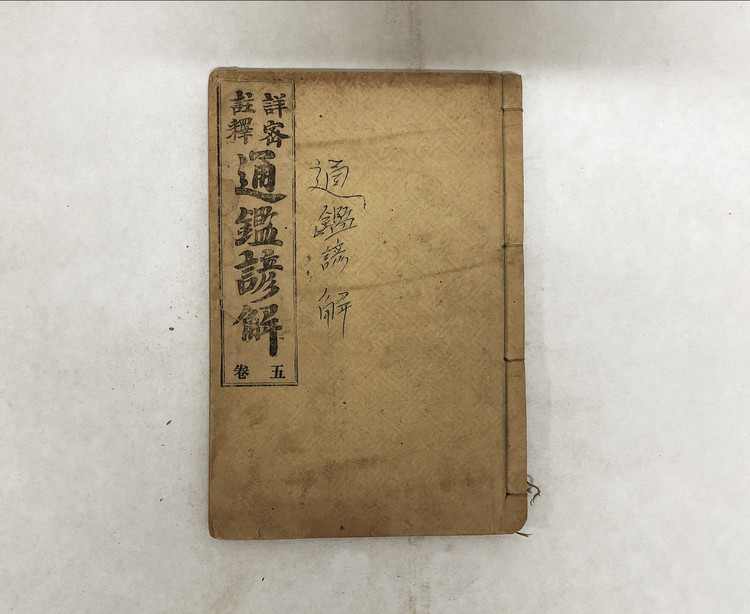 詳密
註釋
通鑑諺解
卷五
通鑑諺解